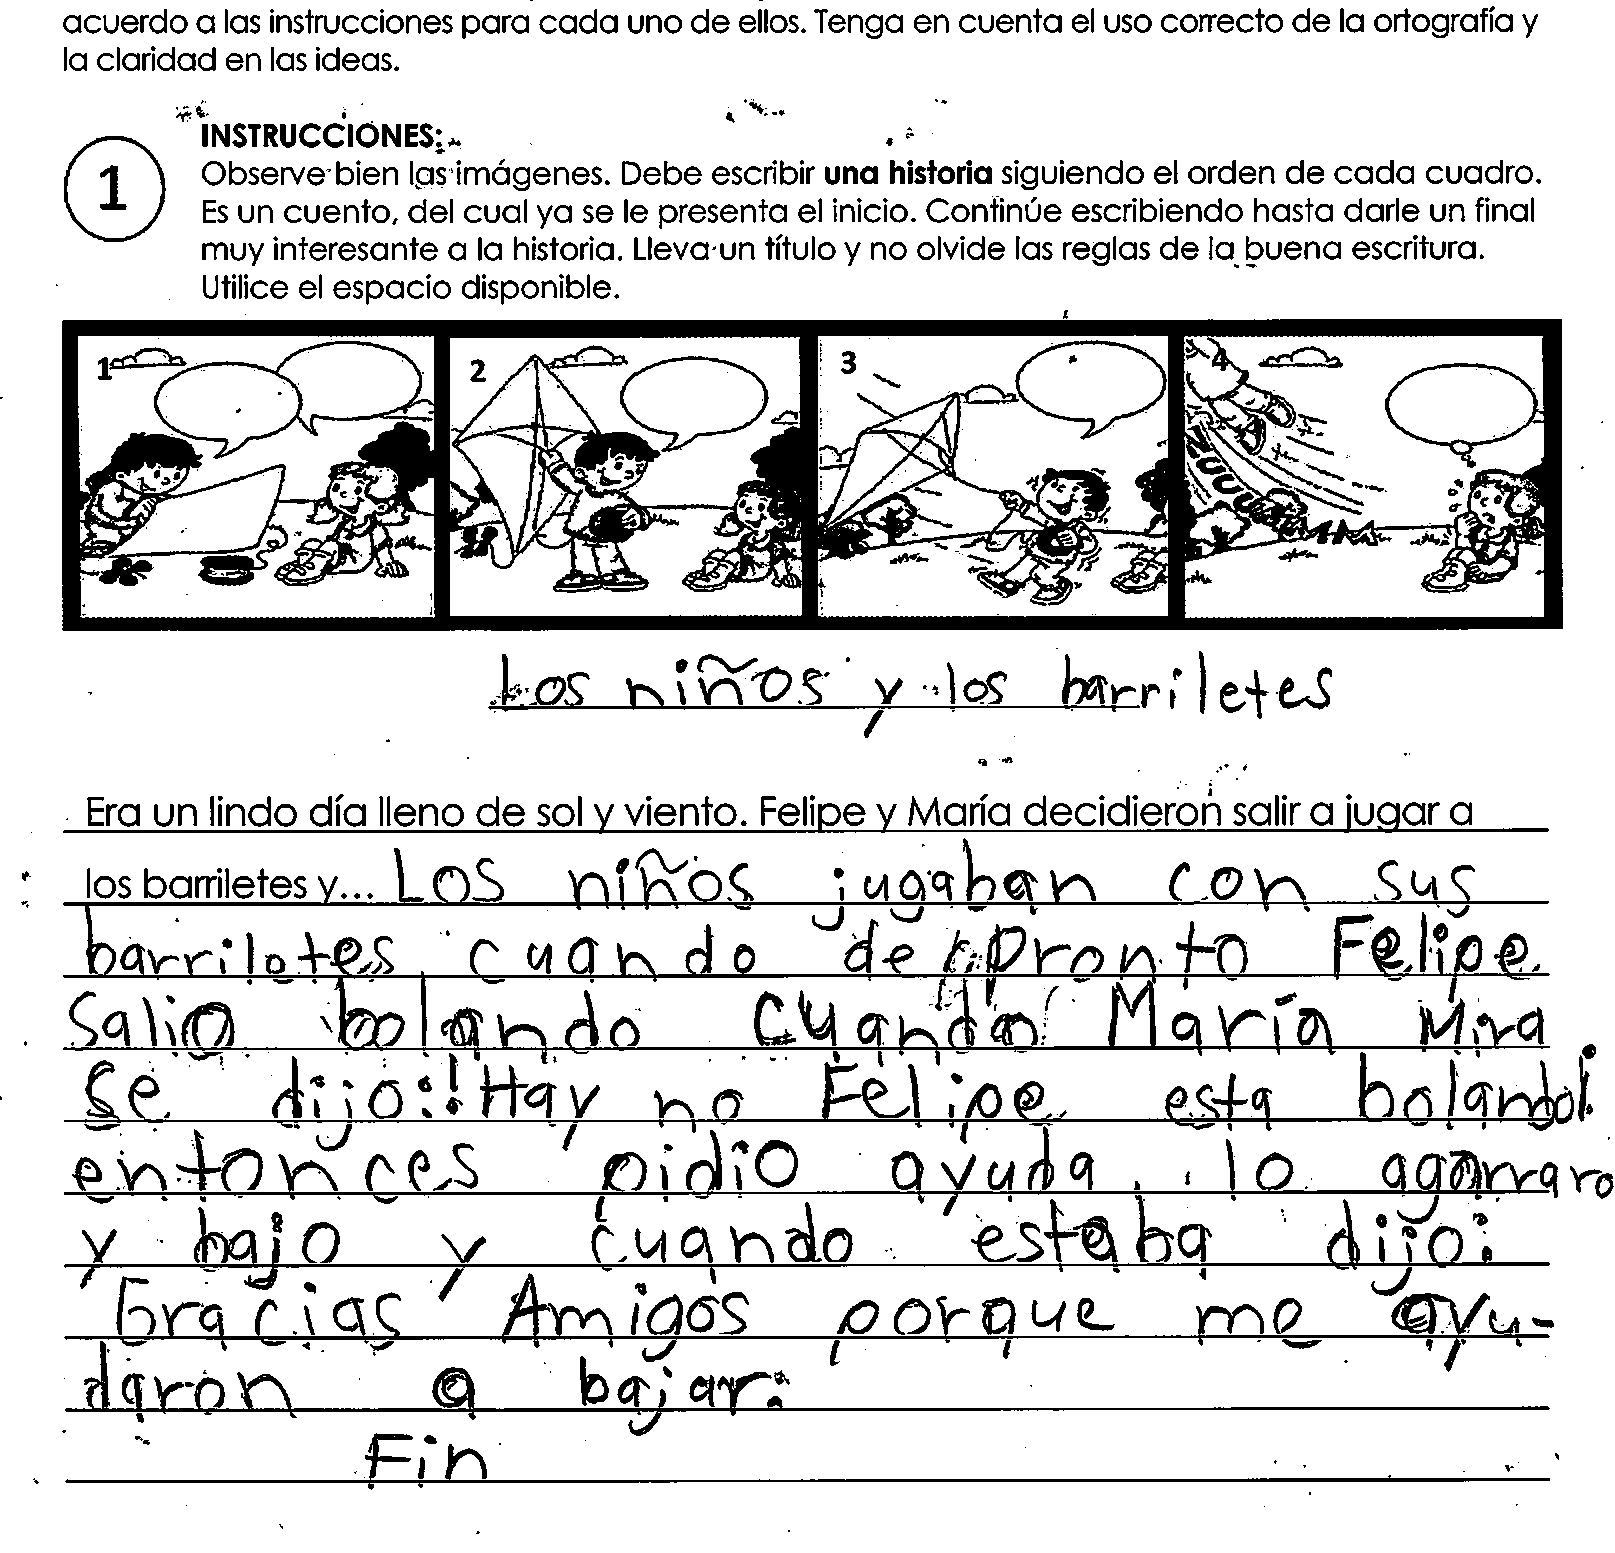 acuerdo a las instrucciones para cada uno de ellos. Tenga en cuenta el uso correcto de la ortografía y
la claridad en las ideas.
1
INSTRUCCIONES:
Observe bien las imágenes. Debe escribir una historia siguiendo el orden de cada cuadro.
Es un cuento, del cual ya se le presenta el inicio. Continúe escribiendo hasta darle un final
muy interesante a la historia. Lleva un título y no olvide las reglas de la buena escritura.
Utilice el espacio disponible.
1 2 3 4
Los niños y los barriletes
Era un lindo día lleno de sol y viento. Felipe y María decidieron salir a jugar a
los barriletes y... Los niños jugaban con sus
barriletes, cuando de pronto Felipe
Salio bolando cuando María Mira
se dijo:! Hay no Felipe esta bolando!
entonces pidio ayuda, lo agarraro
y bajo y cuando estaba dijo:
Gracias Amigos porque me ayu-
daron a bajar.
Fin